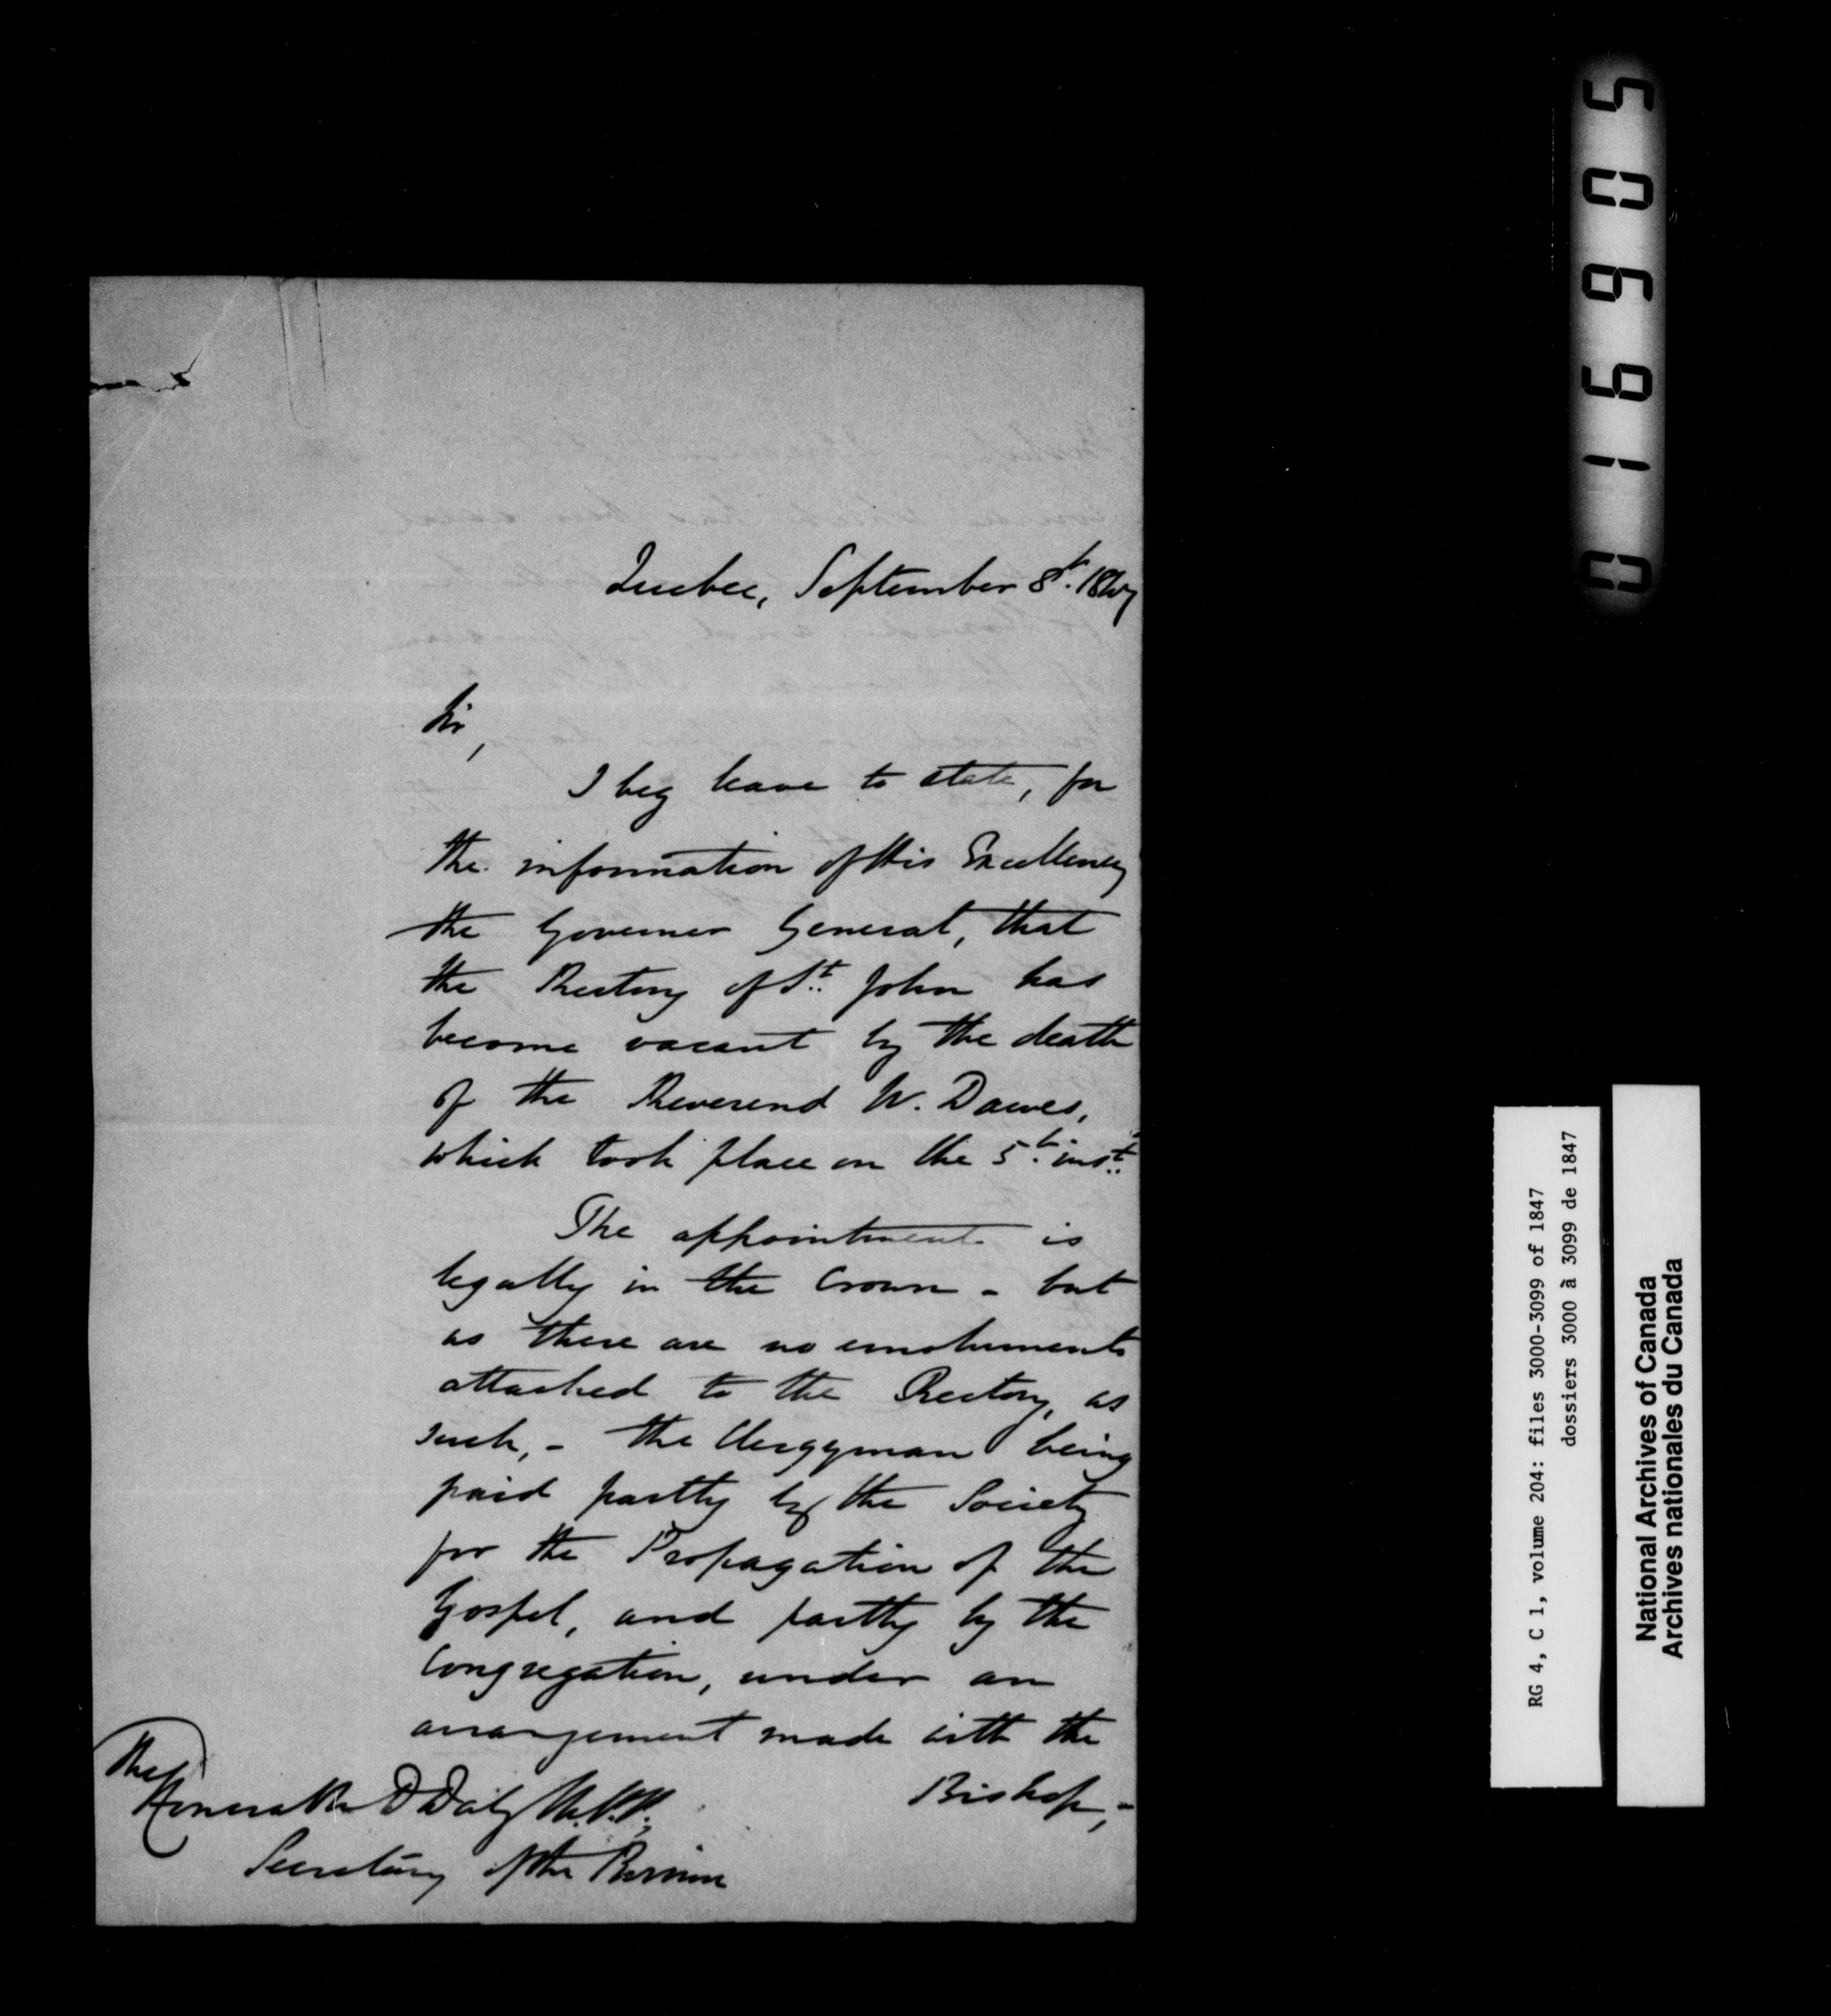 Quebec, September 8th. 1847
Sir,
I beg leave to state, for
the information of His Excellency
the Governor General, that
the Rectory of St. John has
become vacant by the death
of the Reverend W. Dawes,
which took place on the 5th. inst.
The appointment is
legally in the Crown - but
as there are no emoluments
attached to the Rectory, as
such, - the Clergyman being
paid partly by the Society
for the Propagation of the
Gospel, and partly by the
Congregation, under an
arrangement made with the
Bishop, -
The
Honorable D Daly M.P.P.,
Secretary of the Province
016905
RG 4, C 1, volume 204: files 3000-3099 of 1847
dossiers 3000 à 3099 de 1847
National Archives of Canada
Archives nationales du Canada